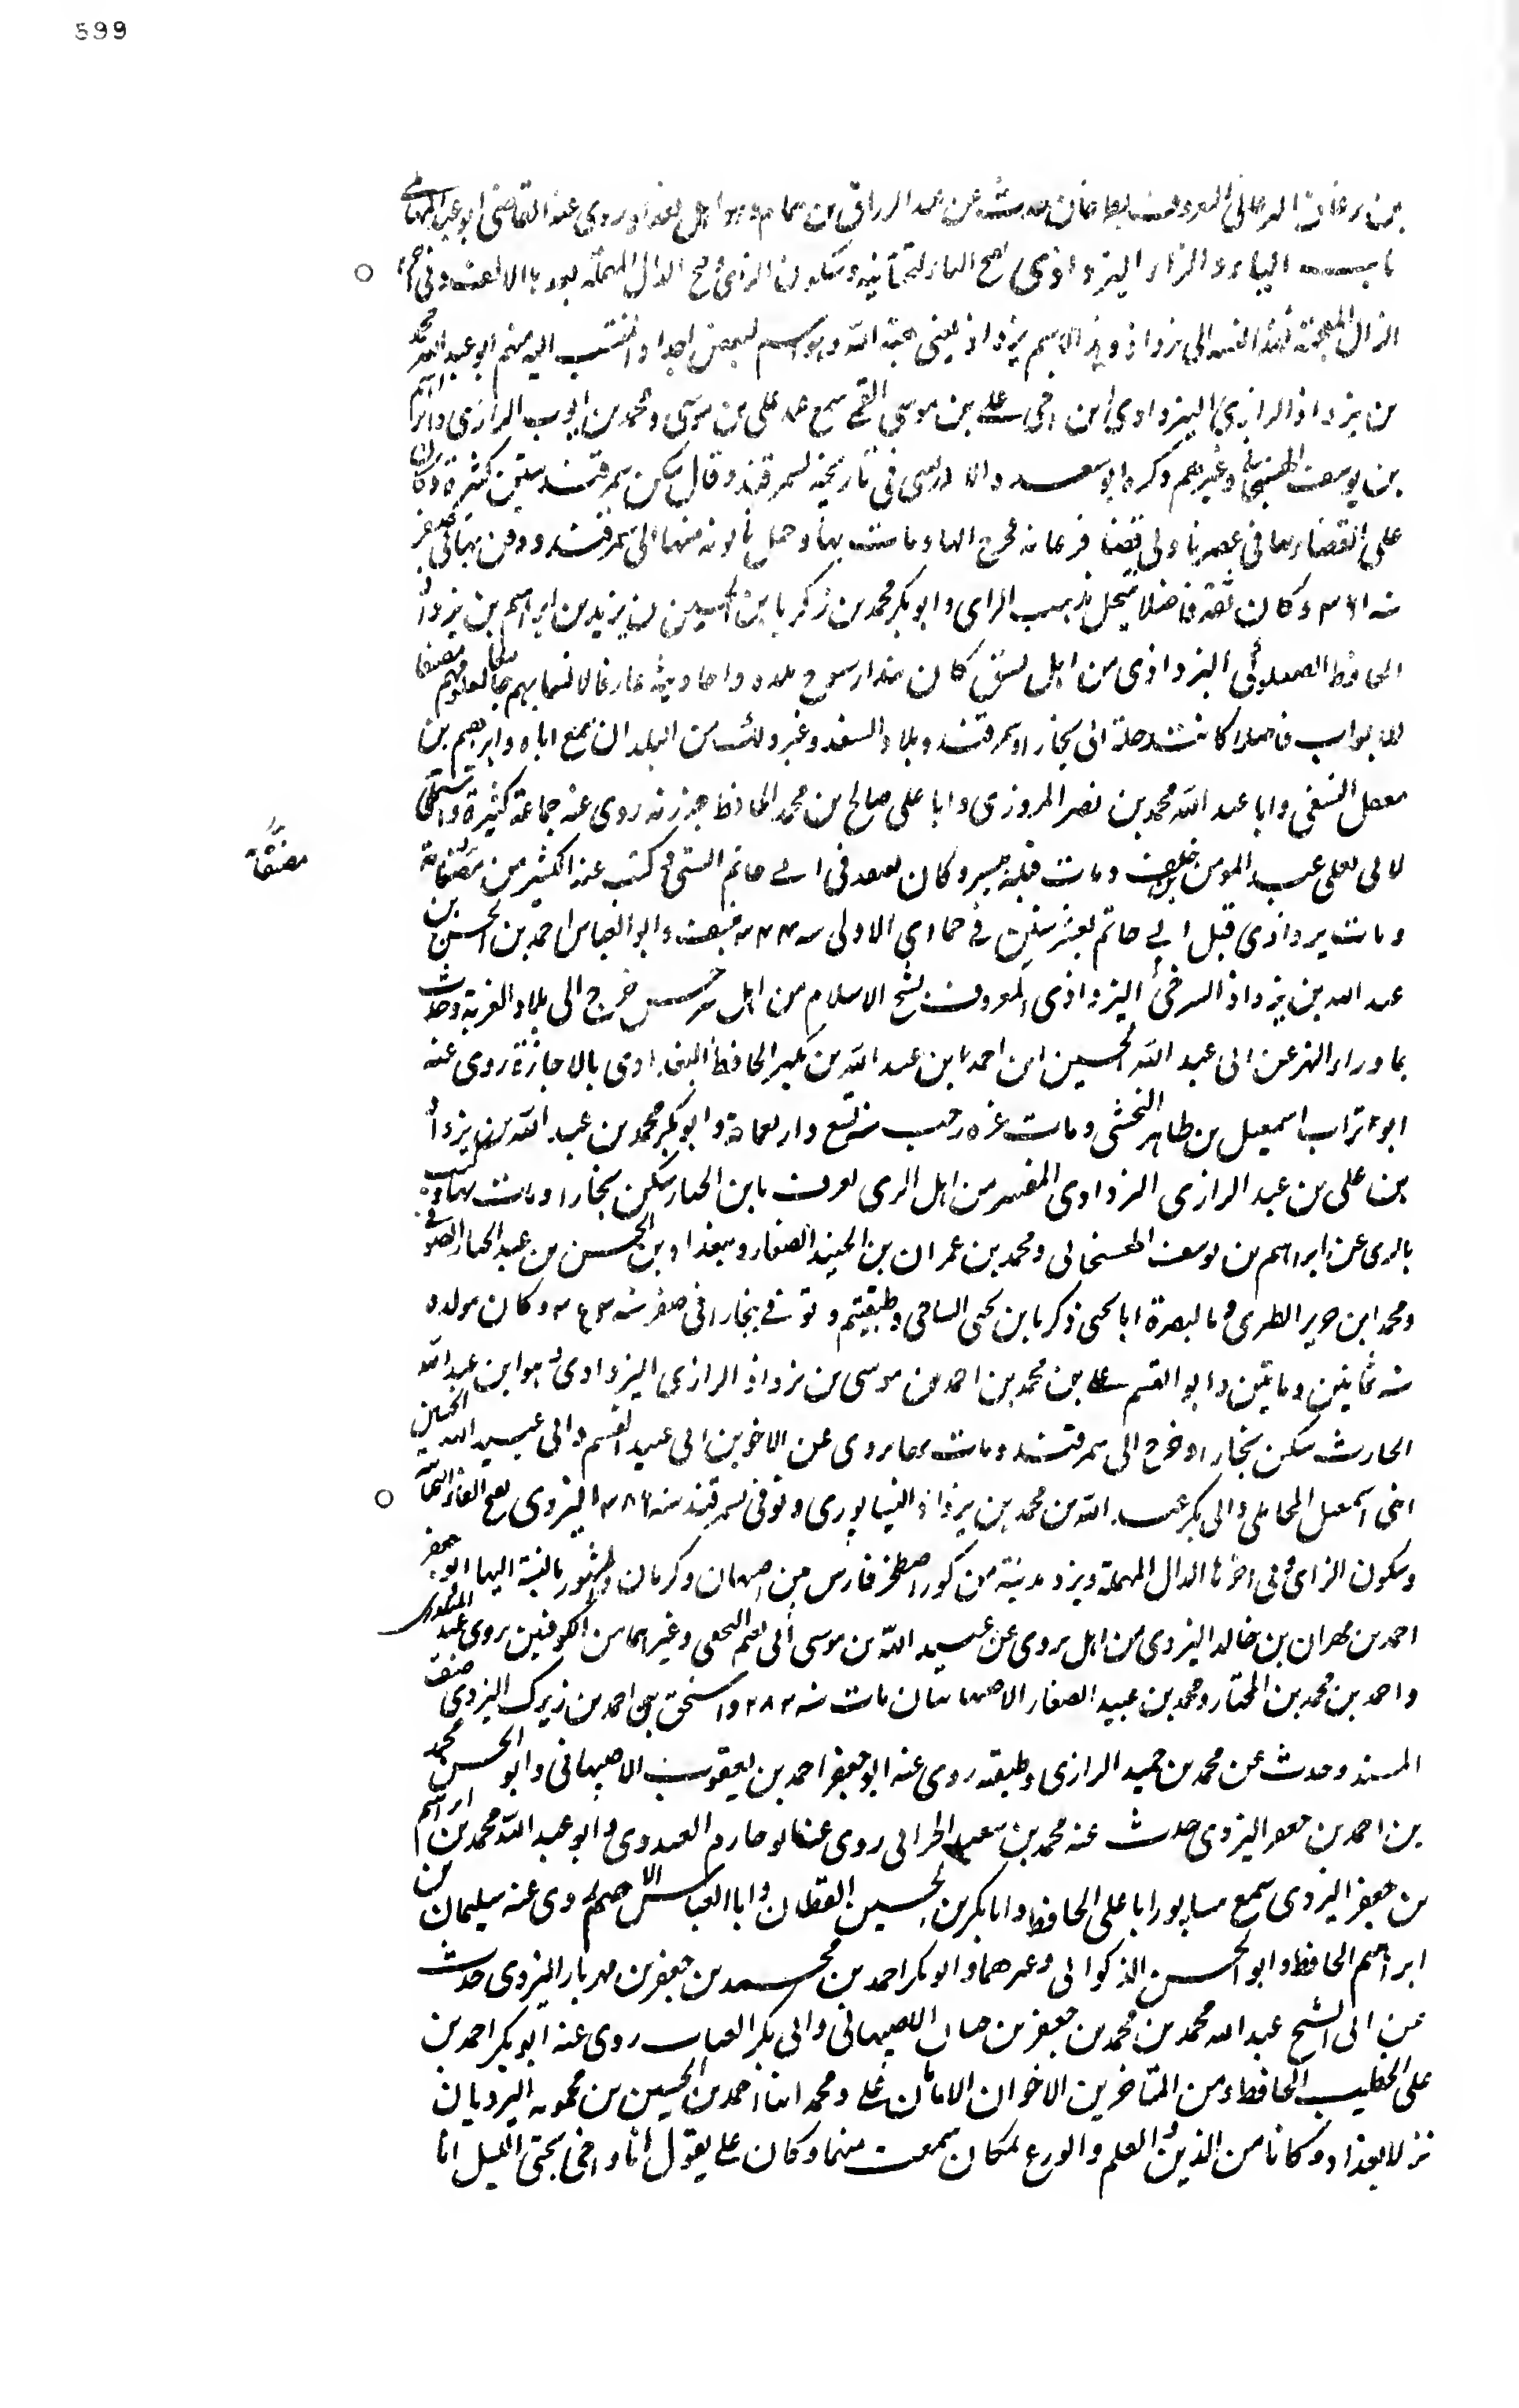 599
بن يرغان اليرغاني المعروف حدث عن عبد الرزاق بن همام روى عنه القاضي ابو عبد
باب الياء والزاء اليزداذي بفتح الياء التحتانية وسكون الزاي وفتح الدال المهملة بعدها الالف وفي آخرها
الذال المعجمة هذه النسبة الى يزداذ وهذا الاسم يزداذ يعني هبة الله وهو اسم لبعض اجداد المنتسب اليه منهم ابو عبد الله محمد
بن يزداذ الرازي اليزداذي ابن اخي علي بن موسى القمي سمع عمه علي بن موسى ومحمد بن ايوب الرازي وابراهيم
بن يوسف الهسنجاني وغيرهم ذكره ابو سعد الادريسي في تاريخه لسمرقند وقال سكن سمرقند سنين كثيرة وكان
على القضاء بها في عصر ولي قضاء فرغانة فخرج اليها ومات بها وحمل تابوته منها الى سمرقند ودفن بها في صفر
سنه ٣٦١ وكان ثقة فاضلا ينتحل مذهب الراي وابو بكر محمد بن زكريا بن الحسين بن يزيد بن ابراهيم بن يزداذ
الحافظ الصعلوكي اليزداذي من اهل نسف كان بلده واحاديثه عارفا لانسابهم جامعا لعلومهم مصنفا
للابواب فاضلا كانت رحلة الى بخارا وسمرقند وبلاد السغد وغير ذلك من البلدان سمع اباه وابراهيم بن
معقل النسفي وابا عبد الله محمد بن نصر المروزي وابا علي صالح بن محمد الحافظ جزرة روى عنه جماعة كثيرة وانتقى
لابي يعلى عبد المومن بن خلف ومات قبله وكان ابي حاتم البستي كتب عنه الكثير من مصنفاته
مصنفاته
ومات يزداذي قبل ابي حاتم بعشر سنين في جمادي الاولى سنه ٣٤٤ بنسف وابو العباس احمد بن الحسن بن
عبد الله بن يزداذ السرخسي اليزداذي المعروف بشيخ الاسلام من اهل سرخس خرج الى بلاد الغربة وحدث
بما وراء النهر عن ابي عبد الله الحسين ابن احمد ابن عبد الله بن بكير الحافظ البغدادي بالاجازة روى عنه
ابو تراب اسمعيل بن طاهر النخشبي ومات غرة رجب سنة تسع واربعمائة وابو بكر محمد بن عبد الله بن يزداذ
بن علي بن عبد الرازي اليزداذي المفسر من اهل الري يعرف بابن الخباز سكن بخارا ومات بها كتب
بالري عن ابراهيم بن يوسف الهسنجاني ومحمد بن عمران بن الجنيد الصفار وببغداد بن الحسن بن عبد الجبار الصوفي
ومحمد ابن جرير الطبري وبالبصرة ابا يحيى زكريا بن يحيى الساجي وطبقتهم وتوفي ببخارا في صفر سنه وكان مولده
سنه ثمانين ومايتين وابو القسم علي بن محمد بن احمد بن موسى بن يزداذ الرازي اليزداذي وهو ابن عبد الله
الحارث سكن بخارا وخرج الى سمرقند ومات بها يروى عن الاخوين ابي عبيد القسم وابي عبيد الله الحسين
ابني اسمعيل المحاملي وابي بكر عبد الله بن محمد بن يزداذ النيسابوري وتوفي بسمرقند سنه ٣٨٦ اليزدي بفتح
وسكون الزاي وفي اخرها الدال المهملة ويزد مدينة من كور اصطخر فارس بين اصبهان وكرمان والمشهور بالنسبة اليها ابو جعفر
احمد بن مهران بن خالد اليزدي من اهل يروى عن عبيد الله بن موسى ابي نعيم النخعي وغيرهما من الكوفيين روى عنه
واحمد بن محمد بن المختار ومحمد بن عبيد الصفار الاصبهانيان مات سنه ٢٨٢ واسحق بن احمد بن زيرك اليزدي صنف
المسند وحدث عن محمد بن حميد الرازي وطبقته روى عنه ابو جعفر احمد بن يعقوب الاصبهاني وابو الحسن محمد
بن احمد بن جعفر اليزدي حدث عنه محمد بن سعيد الحراني روى عنه ابو حازم العبدوي وابو عبد الله محمد بن ابراهيم
بن جعفر اليزدي سمع بنيسابور ابا علي الحافظ وابا بكر بن الحسين القطان وابا العباس الاصم روى عنه سليمان بن
ابراهيم الحافظ وابو الحسن الذكواني وغيرهما وابو بكر احمد بن محمد بن جعفر بن مهريار اليزدي حدث
عن ابي الشيخ عبد الله محمد بن محمد بن جعفر بن حيان الاصبهاني وابي بكر القباب روى عنه ابو بكر احمد بن
علي الخطيب الحافظ ومن المتاخرين الاخوان الامامان علي ومحمد ابنا احمد بن الحسين بن محمويه اليزديان
نزلا بغداد وكانا من الدين والعلم والورع لمكان سمعت منهما وكان علي يقول انا واخي نحيي الليل انا